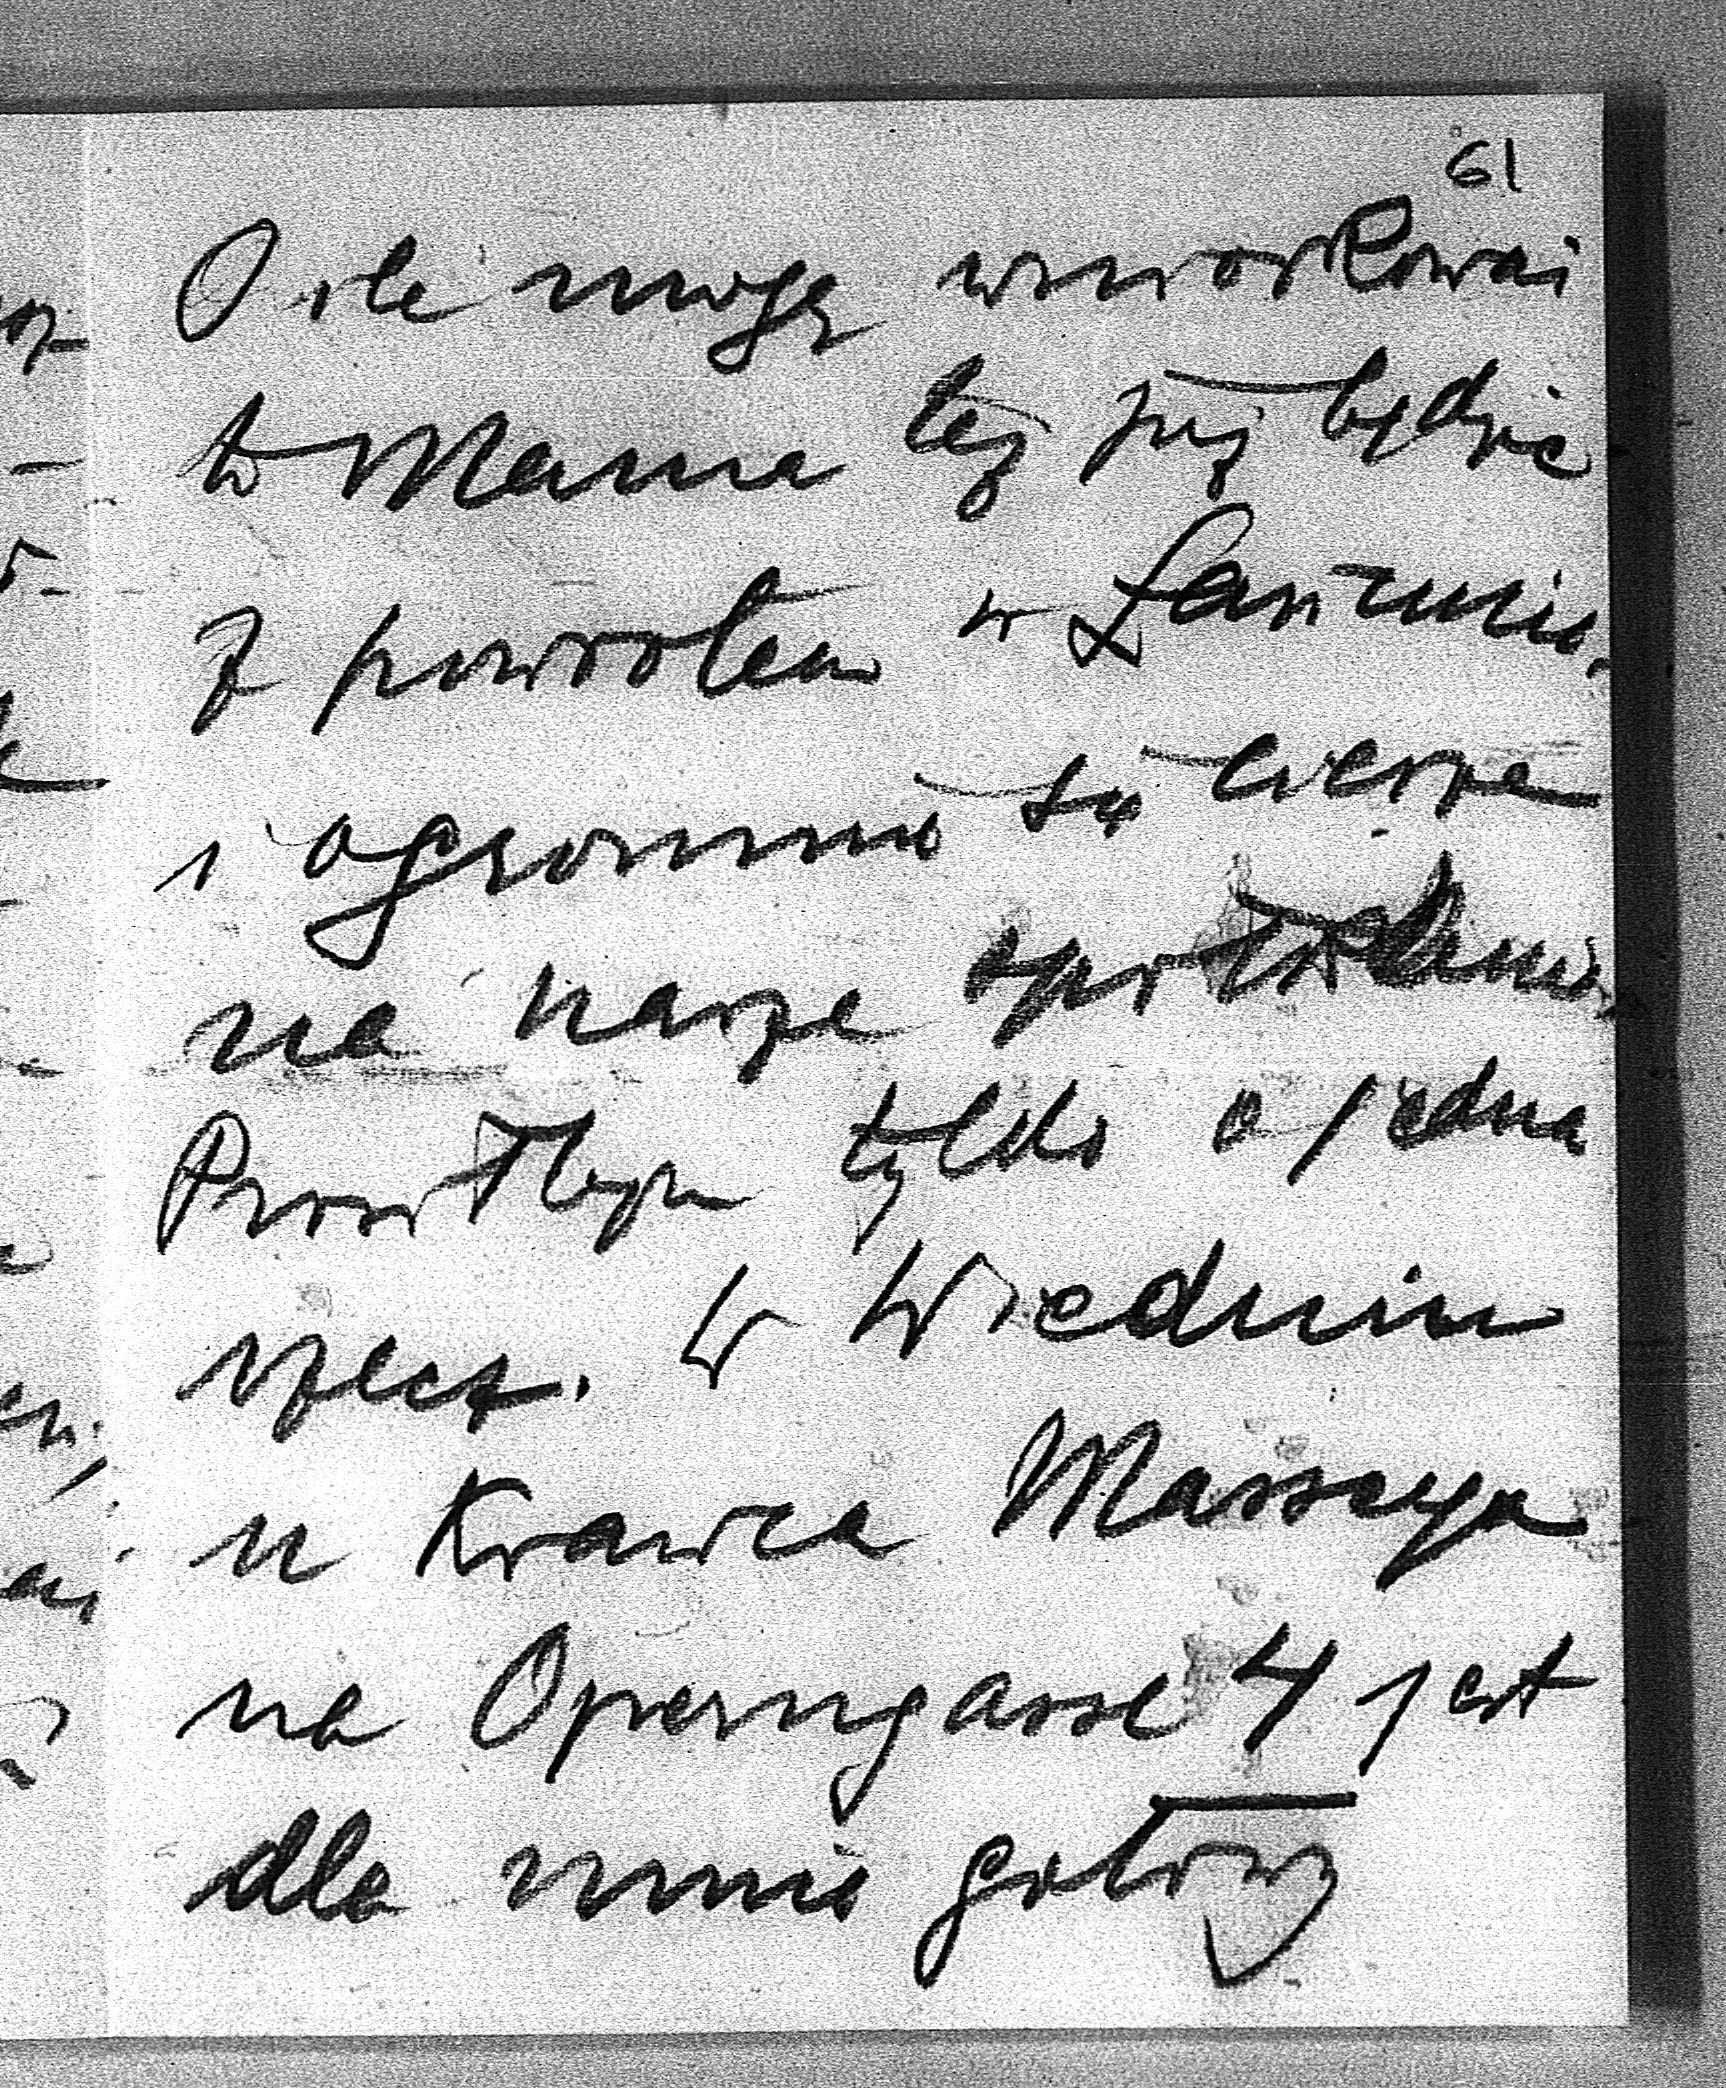 61
O ile mogę wnioskować
to Mama też już będzie
z powrotem w Łańcucie
i ogromnie się cieszę
na nasze spotkanie
Prosiłbym tylko o jedną
rzecz. W Wiedniu
u Krawca Masseya
na Operngasse 4 jest
dla mnie gotowy